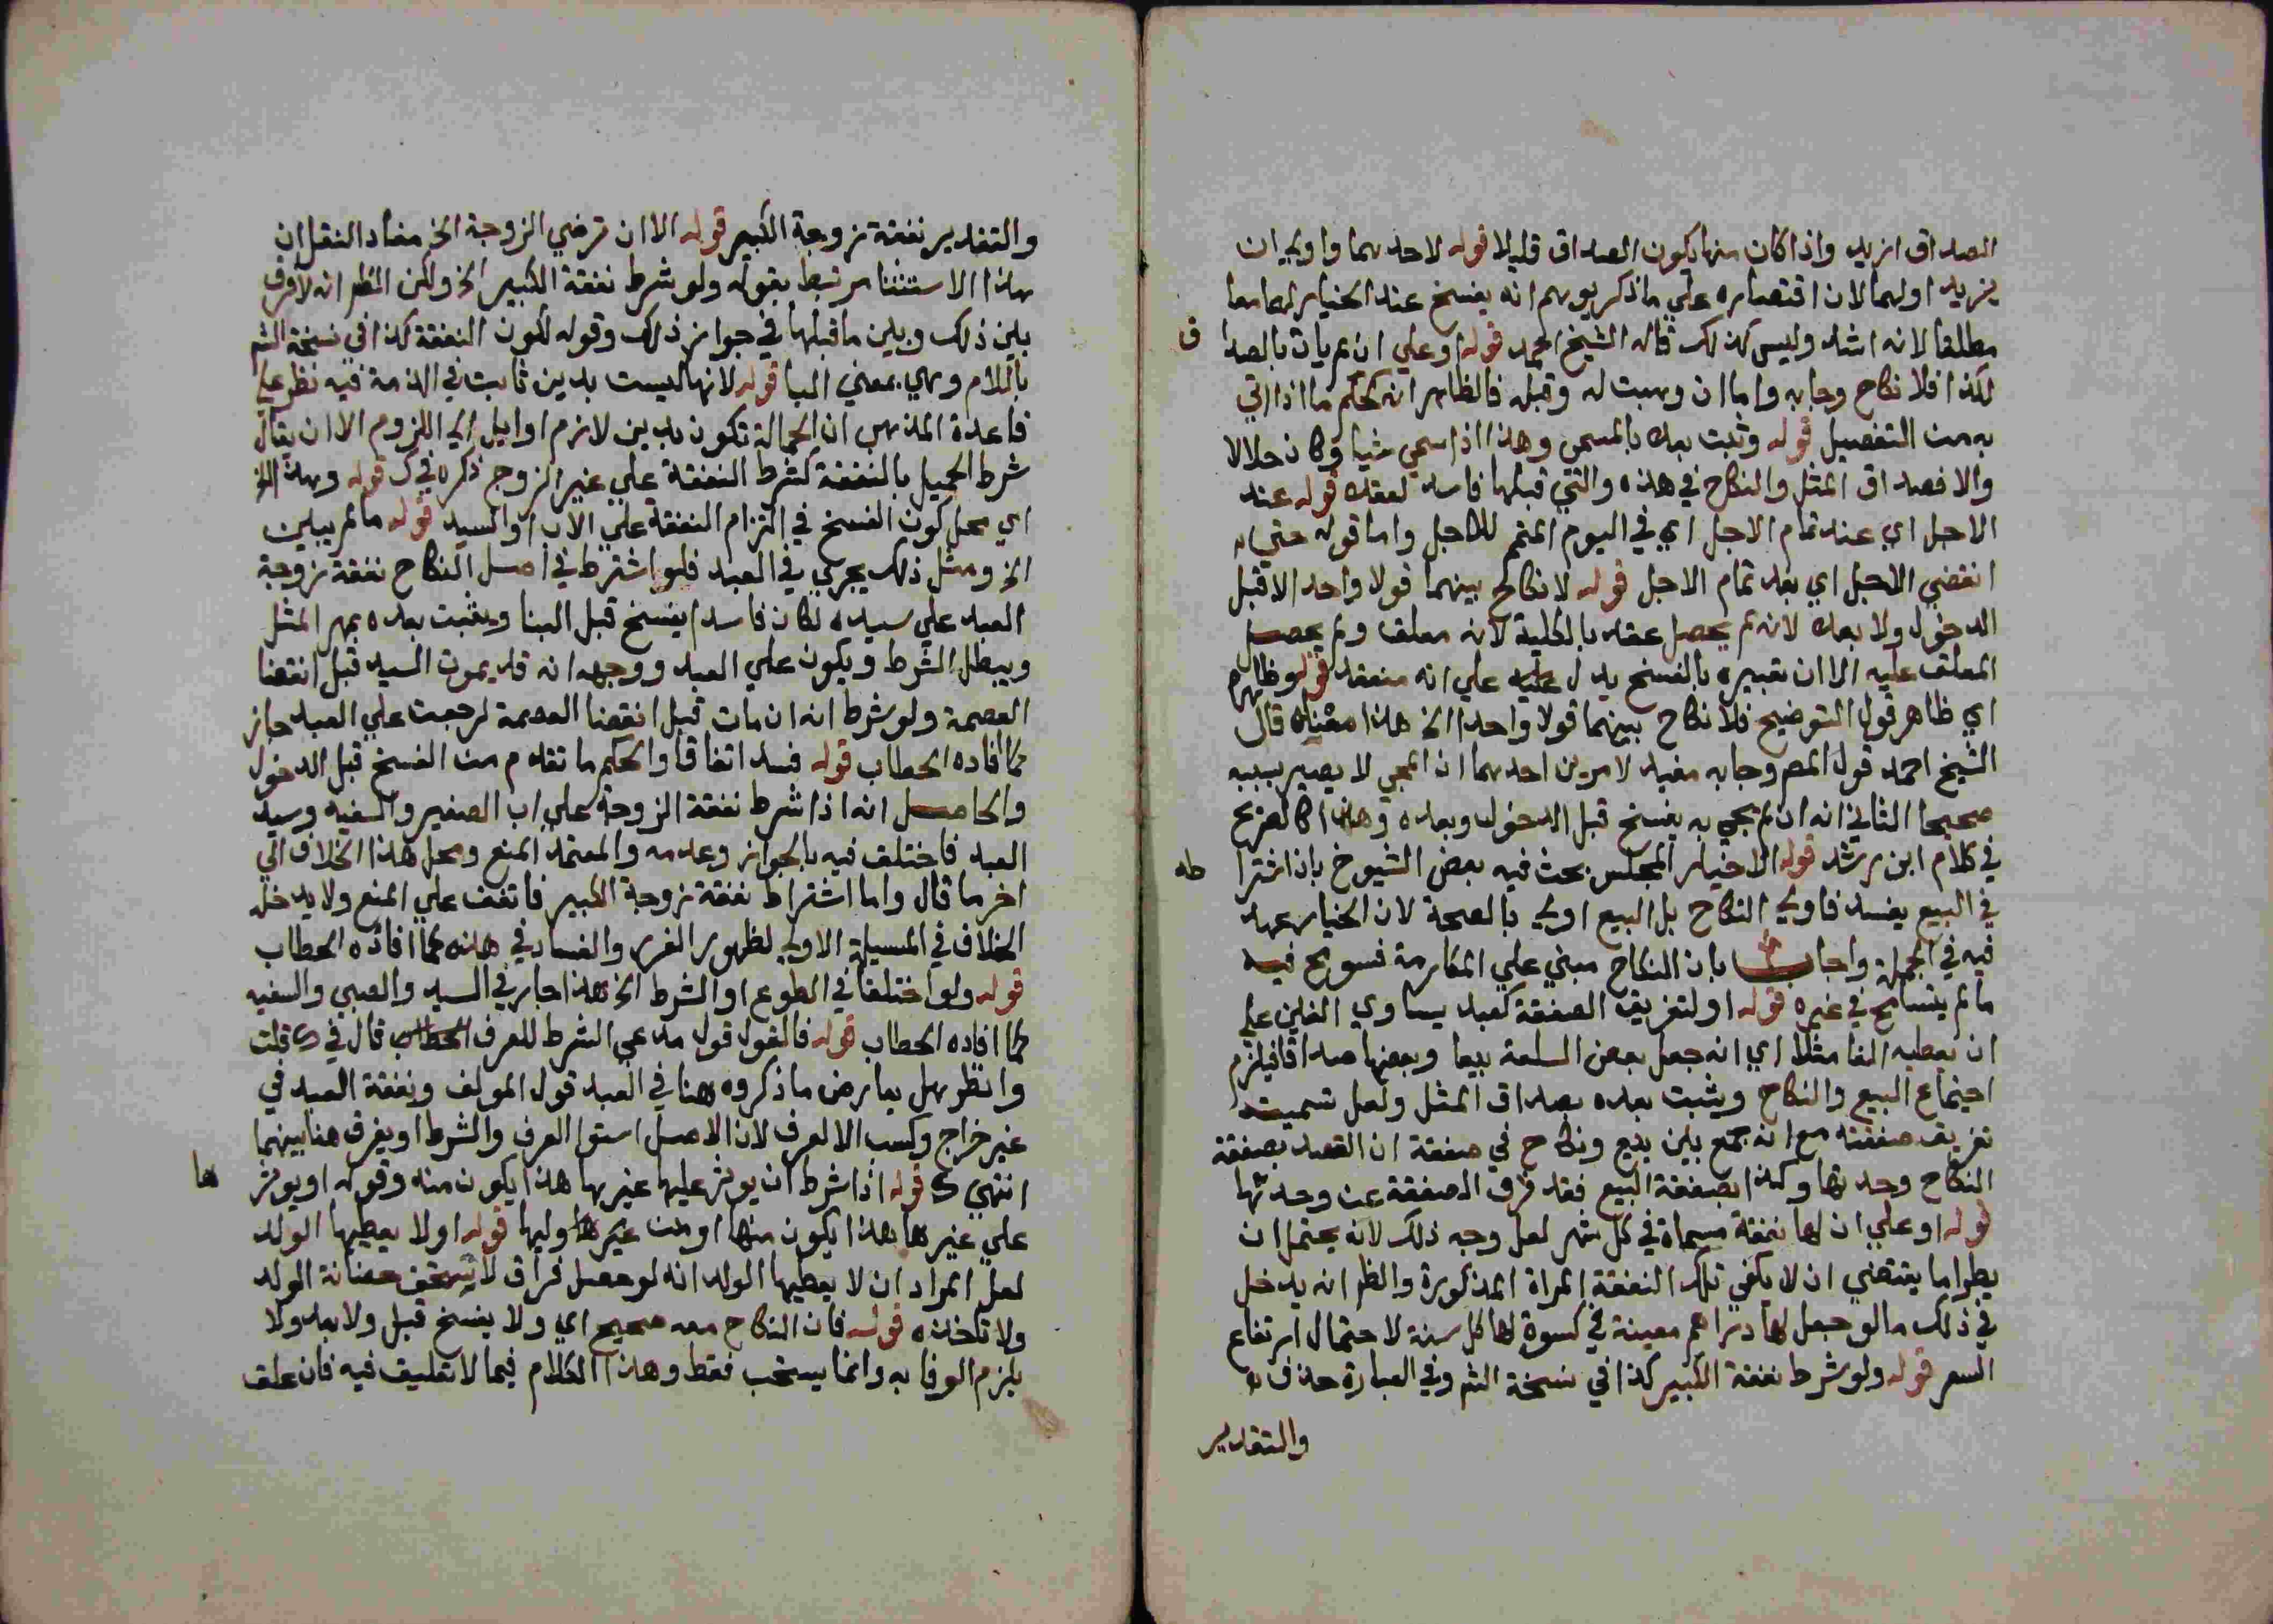 الصداق ازيد واذا كان منها يكون الصداق قليلا قوله لاحدهما واولي ان
يزيد اولهما لان اقتصاره علي ما ذكر يوهم انه يفسخ عند الخيار لهما معا
مطلقا لانه اشد وليس كذلك قاله الشيخ احمد قوله او علي ان لم يات بالصدا ق
لكذا فلا نكاح وجا به واما ان وهبت له وقبله فالظاهر ان كحكم ما اذا اتي
به من التفصيل قوله وثبت بعده بالمسمي وهذا اذا سمي شيا وكان حلالا
والا فصداق المثل والنكاح في هذه والتي قبلها فاسد لعقده قوله عند
الاجل اي عند تمام الاجل اي في اليوم المتمم للاجل واما قوله حتي
انقضي الاجل اي بعد تمام الاجل قوله لا نكاح بينهما قولا واحد الا قبل
الدخول ولا بعده لانه لم يحصل عقد بالكلية لانه معلق ولم يحصل
المعلق عليه الا ان تعبيره بالفسخ يدل عليه علي انه منعقد قوله وظاهرهم
اي ظاهر قول التوضيح فلا نكاح بينهما قولا واحدا الخ هذا معناه قال
الشيخ احمد قول المص وجا به مفيد لامرين احدهما ان المجي لا يصير بسببه
صحيحا الثاني انه ان لم يجي به يفسخ قبل الدخول وبعده وهذا كالصريح
في كلام ابن رشد قوله الا خيار المجلس بحث فيه بعض الشيوخ باذا اشترا طه
في البيع يفسد فاولي النكاح بل البيع اولي بالصحة لان الخيار عهد
فيه في الجملة واجاب بان النكاح مبني علي المكارمة فسومح فيه
ما لم يتسامح في غيره قوله او لتفريق الصفقة كعبد يساوي الفين علي
ان يعطيه الفا مثلا اي انه جعل بعض السلعة بيعا وبعضها صداقا فيلزم
اجتماع البيع والنكاح ويثبت بعده بصداق المثل ولعل تسميته
تفريق صفقته مع انه جمع بين بيع ونكاح في صفقة ان القصد بصفقة
النكاح وحدتها وكذا بصفقة البيع فقد فرق الصفقة عن وحدتها
قوله او علي ان لها نفقة مسماة في كل شهر لعل وجه ذلك لانه يحتمل ان
يطرا ما يقتضي ان لا يكفي تلك النفقة المراة المذكورة والظ انه يدخل
في ذلك ما لو جعل لها دراهم معينة في كسوة لها كل سنة لاحتمال ارتفاع
السعر قوله ولو شرط نفقة الكبير كذا في نسخة الش وفي العبارة حذف
والتقدير
والتقدير نفقة زوجة الكبير قوله الا ان ترضي الزوجة الخ مفاد النقل ان
هذا الاستثنا مرتبط بقوله ولو شرط نفقة الكبير الخ ولكن الظ انه لا فرق
بين ذلك وبين ما قبلها في جواز ذلك وقوله لكون النفقة كذا في نسخة الش
باللام وهي بمعني البا قوله لانها ليست بدين ثابت في الذمة فيه نظر علي
قاعدة المذهب ان الحمالة تكون بدين لازم او ايل الي اللزوم الا ان يقال
شرط الحميل بالنفقة كشرط النفقة علي غير الزوج ذكره في ك قوله وهذا الخ
اي محل كون الفسخ في التزام النفقة علي الاب او السيد قوله ما لم يبين
الخ ومثل ذلك يجري في العبد فلو اشترط في اصل النكاح نفقة زوجة
العبد علي سيده لكان فاسدا يفسخ قبل البنا ويثبت بعده بمهر المثل
ويبطل الشرط ويكون علي العبد ووجهه انه قد يموت السيد قبل انقضا
العصمة ولو شرط انه ان مات قبل انقضا العصمة لرجعت علي العبد جاز
كما افاده الحطاب قوله فسد اتفاقا والحكم ما تقدم من الفسخ قبل الدخول
والحاصل انه اذا شرط نفقة الزوجة علي اب الصغير والسفيه وسيد
العبد فاختلف فيه بالجواز وعدمه والمعتمد المنع ومحل هذا الخلاف الي
اخر ما قال واما اشتراط نفقة زوجة الكبير فاتفق علي المنع ولا يدخله
الخلاف في المسيلة الاولي لظهور الغرر والفساد في هذه كما افاده الحطاب
قوله ولو اختلفا في الطوع او الشرط الخ هذا جار في السيد والصبي والسفيه
كما افاده الحطاب قوله فالقول قول مدعي الشرط للعرف الحطاب قال في ك قلت
وانظر هل يعارض ما ذكروه هنا في العبد قول المولف ونفقة العبد في
غير خراج وكسب الا لعرف لان الاصل استوا العرف والشرط او يفرق هنا بينهما
انتهي ك قوله اذا شرط ان يوثر عليها غيرها هذا يكون منه وقوله او يوثر ها
علي غيرها هذا يكون منها او من غيرها وليها قوله او لا يعطيها الولد
لعل المراد ان لا يعطيها الولد انه لو حصل فراق لا تستحق حضانة الولد
ولا تاخذه قوله فان النكاح معه صحيح اي ولا يفسخ قبل ولا بعد ولا
يلزم الوفا به وانما يستحب فقط وهذا الكلام فيما لا تعليق فيه فان علق